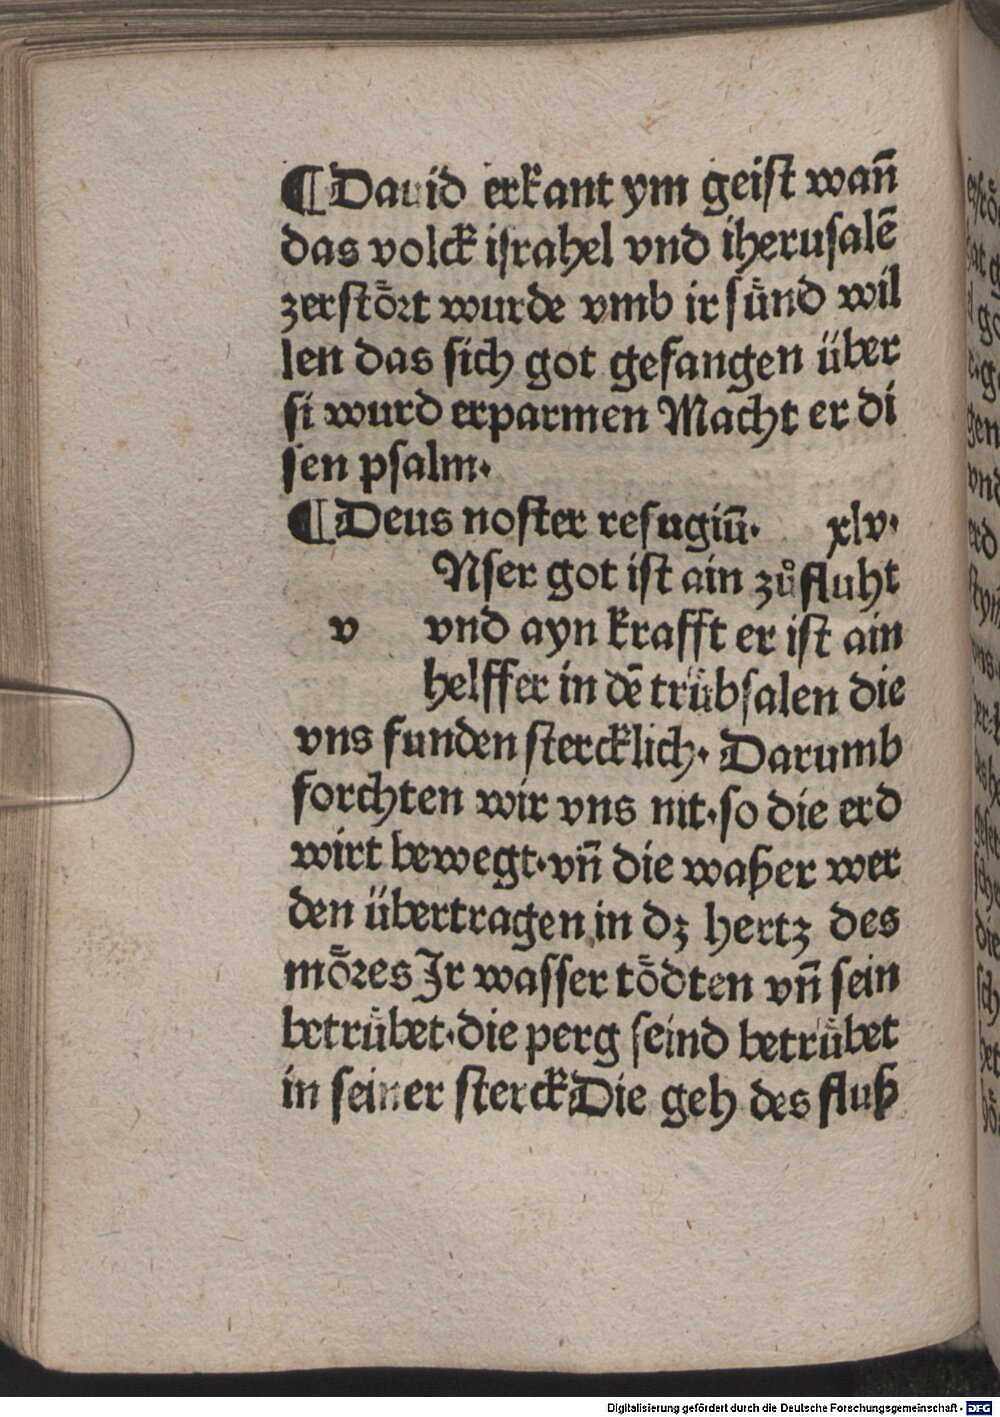 ¶Dauid erkant ym geist wañ
das volck iſrahel vnd iheruſalē
zerſtoͤꝛt wurde vmb ir ſuͤnd wil
len das ſich got gefangen über
ſi wurd erparmen Macht er di
ſen pſalm·
¶Deus noſter refugiū· xlv·
Nſer got iſt ain zůfluht
v vnd ayn krafft er iſt ain
helffer in dē truͤbſalen die
vns funden ſtercklich· Darumb
forchten wir vns nit·ſo die erd
wirt bewegt·vñ die waßer wer
den übertragen in dꝫ hertz des
moͤꝛes Jr waſſer toͤdten vñ ſein
betruͤbet·die perg ſeind betruͤbet
in ſeiner ſterck Die geh des fluß
Digitalisierung gefördert durch die Deutsche Forschungsgemeinschaft - DFG